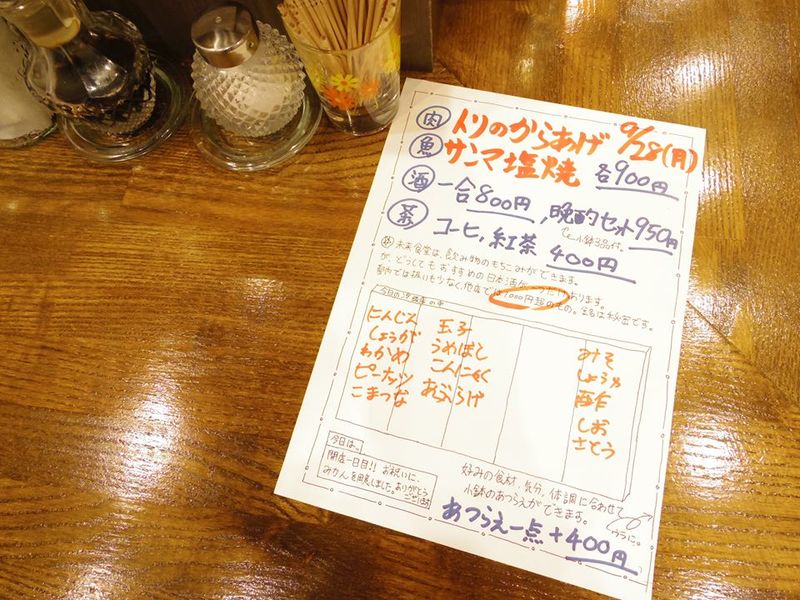 9/28(月)
肉 トリのからあげ
魚 サンマ塩焼 各900円
酒 一合800円、晩酌セット950円
小鉢3品付。
茶 コーヒ,紅茶 400円
未来食堂は、飲み物のもちこみができます。
が、どうしてもおすすめの日本酒が一つだけあります。
都内では扱いも少なく、他店では1000円超のもの。銘は秘密です。
今日の冷蔵庫の中
にんじん
しょうが
わかめ
ピーナッツ
こまつな
玉子
うめぼし
こんにゃく
あぶらげ
みそ
しょうゆ
酢
しお
さとう
今日は、
開店一日目!! お祝いに、
みかんを用意しました。ありがとう
ございます
好みの食材、気分、体調に合わせて
小鉢のあつらえができます。
ウラに。
あつらえ一点+400円